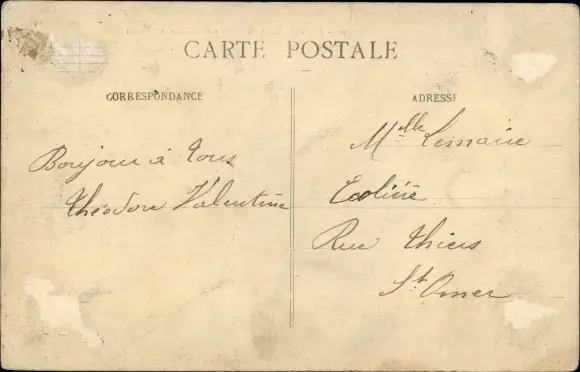 CARTE POSTALE
CORRESPONDANCE
Bonjour à tous
Théodore Valentine
ADRESSE
Melle Lemaire
Ecolière
Rue Thiers
St Omer